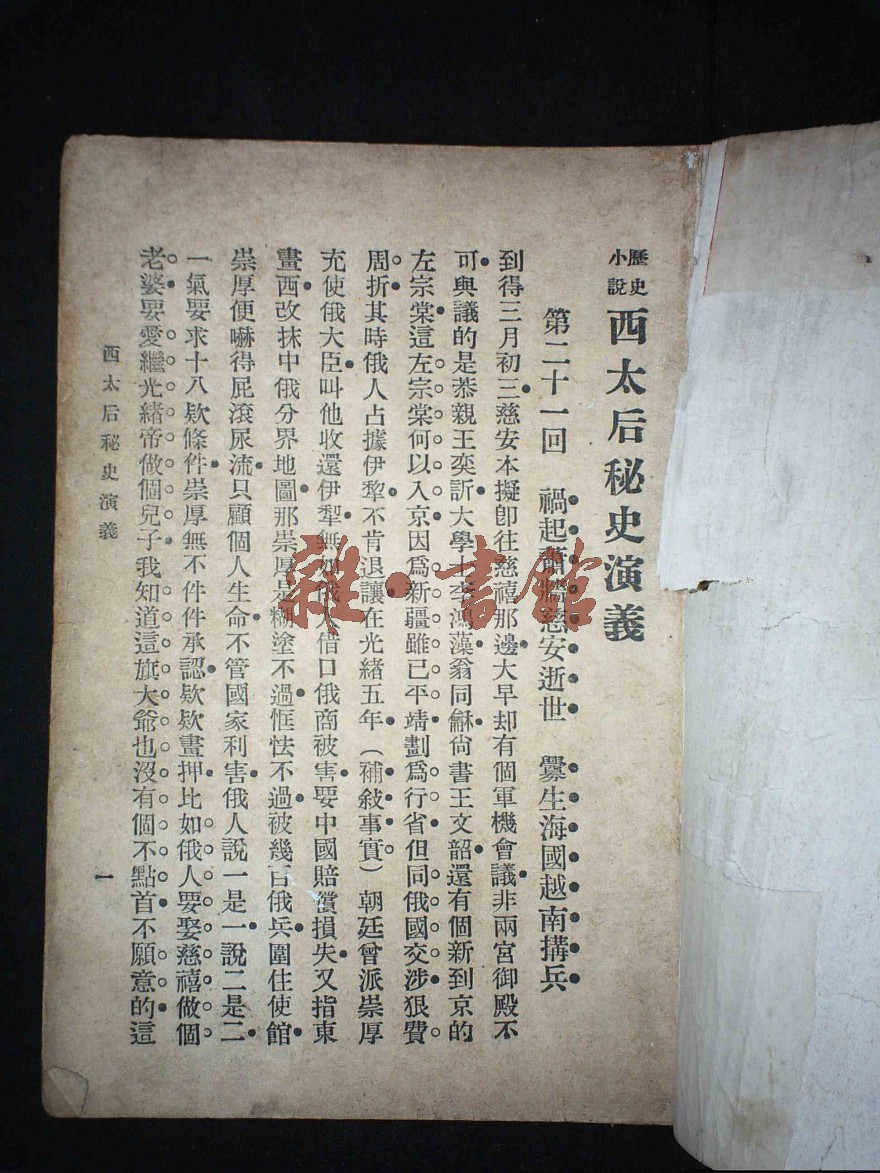 歷史小說
西太后秘史演義
第二十一回　禍起蕭牆慈安逝世　釁生海國越南搆兵
到得三月初三慈安本擬卽往慈禧那邊大早却有個軍機會議非兩宮御殿不
可與議的是恭親王奕訢大學士李鴻藻翁同龢尙書王文韶還有個新到京的
左宗棠這左宗棠何以入京因爲新疆雖已平靖劃爲行省但同俄國交涉狠費
周折其時俄人占據伊犂不肯退讓在光緒五年（補敍事實）朝廷曾派崇厚
充使俄大臣叫他收還伊犂無如俄人借口俄商被害要中國賠償損失又指東
畫西改抹中俄分界地圖那崇厚是糊塗不過恇怯不過被幾百俄兵圍住使館
崇厚便嚇得屁滾尿流只顧個人生命不管國家利害俄人說一是一說二是二
一氣要求十八欵條件崇厚無不件件承認欵欵畫押比如俄人要娶慈禧做個
老婆要愛繼光緒帝做個兒子我知道這旗大爺也沒有個不點首不願意的這
西太后秘史演義
一
雜·書館